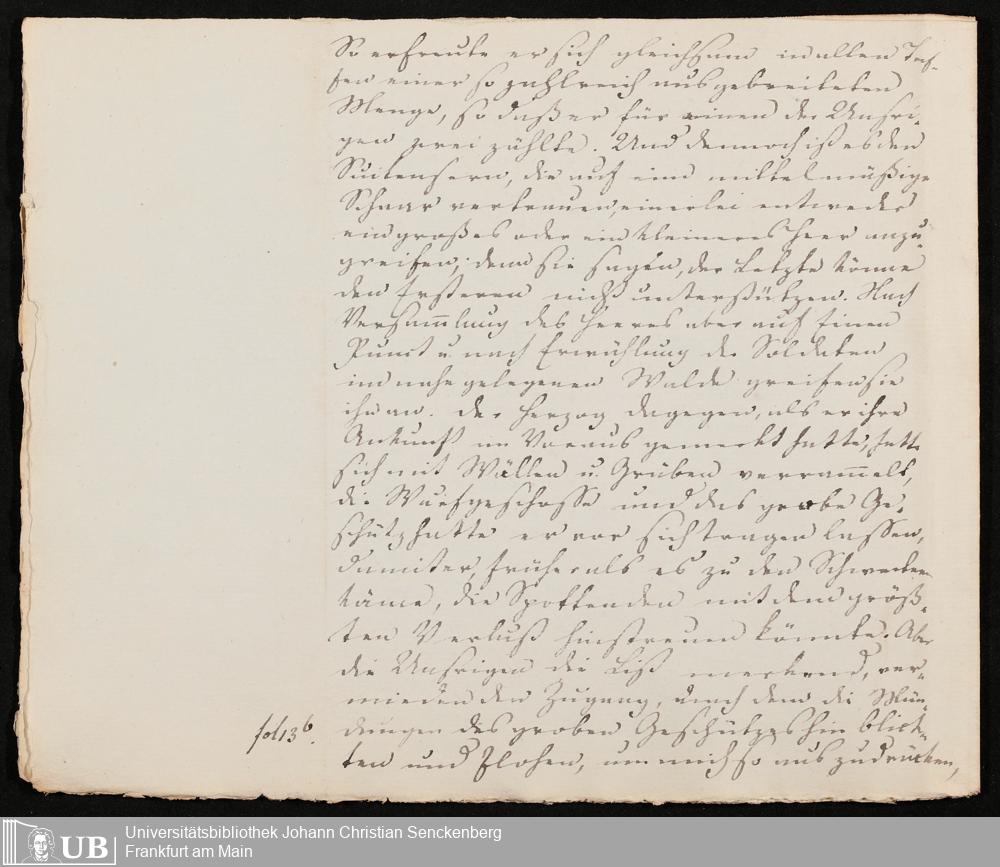 So erfreute er sich gleichsam in allen Tref-
fen einer so zahlreich ausgebreiteten
Menge, so daß er für einen der Unsri-
gen zwei zählte. Und dennoch ist es den
Suitensern, die auf eine mittelmäßige
Schaar vertrauen, einerlei entweder
ein großes oder ein kleineres Heer anzu-
greifen; denn sie sagen, der Letzte könne
den Ersteren nicht unterstützen. Nach
Versam̅lung des Heeres aber auf einen
Punct u. nach Erwählung der Soldaten
im nahe gelegenen Walde greifen sie
ihn an. Der Herzog dagegen, als er ihre
Ankunft im Voraus gemerkt hatte, hatte
sich mit Wällen u. Gräben verram̅elt,
die Wurfgeschosse und das grobe Ge-
schütz hatte er vor sich tragen lassen,
damit er, früher als es zu den Schwerten
käme, die Spottenden mit dem größ-
ten Verlust hinstreuen könnte. Aber
die Unsrigen die List merkend, ver-
mieden den Zugang, durch den die Mün-
dungen des groben Geschützes hin blick-
ten und flohen, um mich so auszudrücken,
fol 13b.
Universitätsbibliothek Johann Christian Senckenberg
Frankfurt am Main
UB